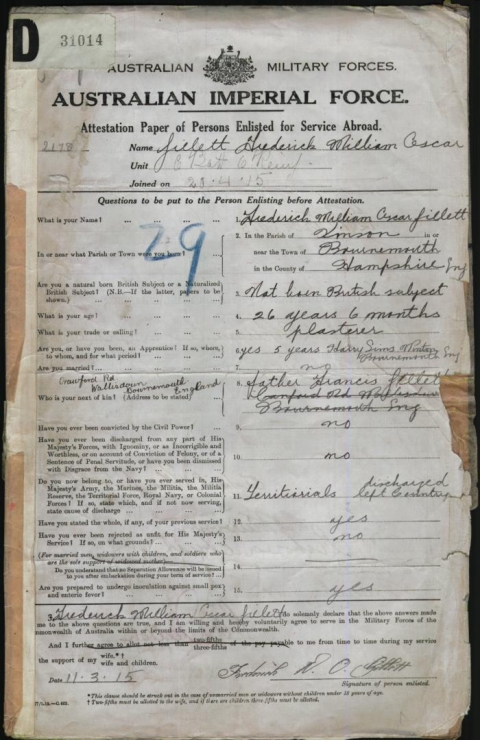 D 31014
AUSTRALIAN MILITARY FORCES.
AUSTRALIAN IMPERIAL FORCE.
Attestation Paper of Persons Enlisted for Service Abroad.
2178 Name Jillett Frederick William Oscar
Unit 8 Batt 6 Reinf.
Joined on 28.4.15
Questions to be put to the Person Enlisting before Attestation.
What is your Name? ... ... ... ... 1. Frederick William Oscar Jillett
In or near what Parish or Town were you born? ... 2. In the Parish of Winson in or
near the Town of Bournemouth
in the County of Hampshire Eng
29
Are you a natural born British Subject or a Naturalized
British Subject? (N.B.—If the latter, papers to be
shown.) ... ... ... ... 3. Nat born British subject
What is your age? ... ... ... ... 4. 26 years 6 months
What is your trade or calling? ... ... ... 5. plasterer
Are you, or have you been, an Apprentice? If so, where,
to whom, and for what period? ... ... 6. yes 5 years Harry Sims Winton
Bournemouth Eng
Are you married? ... ... ... ... 7. no
Crawford Rd
Wallisdown
Bournemouth
England
Who is your next of kin? (Address to be stated) ... 8. father Francis Jillett
Canford Rd Wallisdown
Bournemouth Eng
Have you ever been convicted by the Civil Power? ... 9. no
Have you ever been discharged from any part of His
Majesty's Forces, with Ignominy, or as Incorrigible and
Worthless, or on account of Conviction of Felony, or of a
Sentence of Penal Servitude, or have you been dismissed
with Disgrace from the Navy? ... ... 10. no
Do you now belong to, or have you ever served in, His
Majesty's Army, the Marines, the Militia, the Militia
Reserve, the Territorial Force, Royal Navy, or Colonial
Forces? If so, state which, and if not now serving,
state cause of discharge ... ... ... 11. Territiorials discharged
left Country
Have you stated the whole, if any, of your previous service? 12. yes
Have you ever been rejected as unfit for His Majesty's
Service? If so, on what grounds? ... ... 13. no
(For married men, widowers with children, and soldiers who
are the sole support of widowed mother—
Do you understand that no Separation Allowance will be issued
to you after embarkation during your term of service? ... 14.
Are you prepared to undergo inoculation against small pox
and enteric fever? ... ... ... ... 15. yes
I, Frederick William Oscar Jillett do solemnly declare that the above answers made
me to the above questions are true, and I am willing and hereby voluntarily agree to serve in the Military Forces of the
mmonwealth of Australia within or beyond the limits of the Commonwealth.
And I further agree to allot not less than two-fifths three-fifths of the pay payable to me from time to time during my service
the support of my wife.*† wife and children.
Date 11.3.15 Frederick W. O. Jillett
Signature of person enlisted.
*This clause should be struck out in the case of unmarried men or widowers without children under 18 years of age.
†Two-fifths must be allotted to the wife, and if there are children three-fifths must be allotted.